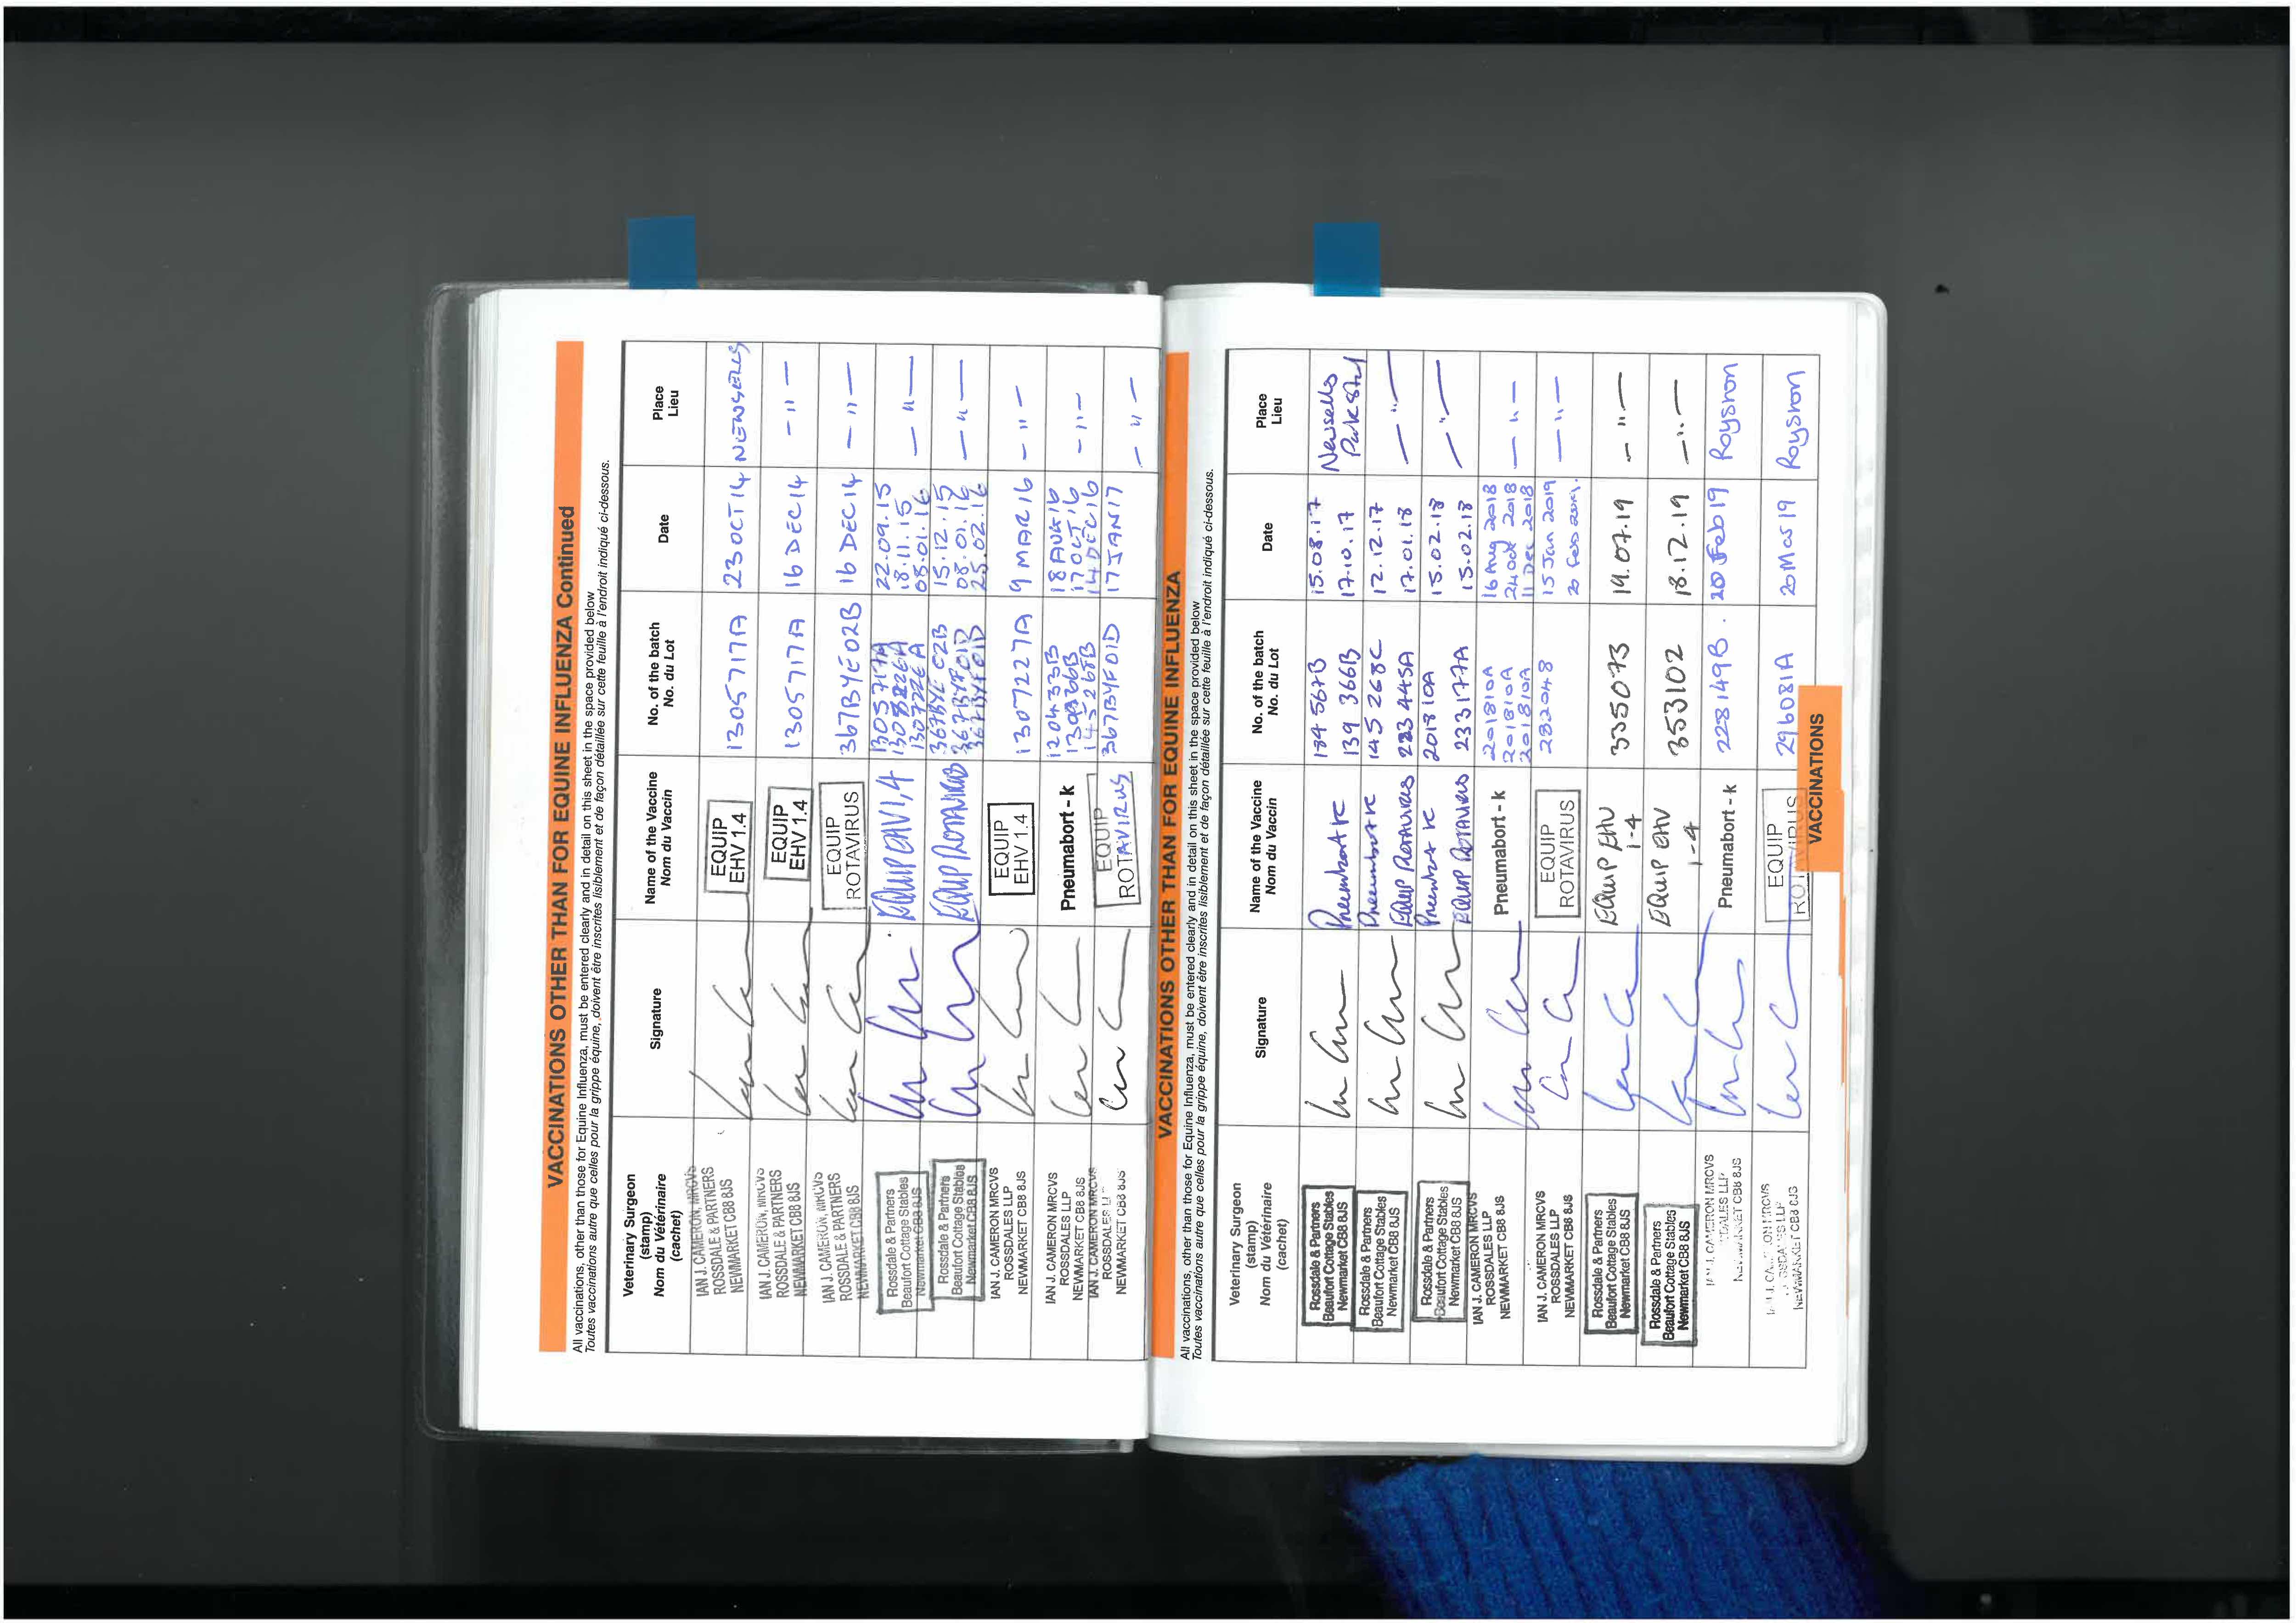 VACCINATIONS OTHER THAN FOR EQUINE INFLUENZA Continued
All vaccinations, other than those for Equine Influenza, must be entered clearly and in detail on this sheet in the space provided below
Toutes vaccinations autre que celles pour la grippe équine, doivent être inscrites lisiblement et de façon détaillée sur cette feuille à l'endroit indiqué ci-dessous.
Veterinary Surgeon (stamp) Nom du Vétérinaire (cachet) Signature Name of the Vaccine Nom du Vaccin No. of the batch No. du Lot Date Place Lieu
IAN J. CAMERON, MRCVS
ROSSDALE & PARTNERS
NEWMARKET CB8 8JS
EQUIP EHV 1.4 1305717A 23 OCT 14 NEWSELLS
IAN J. CAMERON, MRCVS
ROSSDALE & PARTNERS
NEWMARKET CB8 8JS
EQUIP EHV 1.4 1305717A 16 DEC 14 - " -
IAN J. CAMERON, MRCVS
ROSSDALE & PARTNERS
NEWMARKET CB8 8JS
EQUIP ROTAVIRUS 367BYE02B 16 DEC 14 - " -
Rossdale & Partners
Beaufort Cottage Stables
Newmarket CB8 8JS
EQUIP EHV 1,4 1305717A 22.09.15 - " -
18.11.15
1307226A 08.01.16
Rossdale & Partners
Beaufort Cottage Stables
Newmarket CB8 8JS
EQUIP ROTAVIRUS 367BYE02B 15.12.15 - " -
367BYF01D 08.01.16
367BYF01D 25.02.16
IAN J. CAMERON MRCVS
ROSSDALES LLP
NEWMARKET CB8 8JS
EQUIP EHV 1.4 1307227A 9 MAR 16 - " -
IAN J. CAMERON MRCVS
ROSSDALES LLP
NEWMARKET CB8 8JS
Pneumabort - k 120433B 18 AUG 16 - " -
139366B 17 OCT 16
145268B 14 DEC 16
IAN J. CAMERON MRCVS
ROSSDALES LLP
NEWMARKET CB8 8JS
EQUIP ROTAVIRUS 367BYF01D 17 JAN 17 - " -
VACCINATIONS OTHER THAN FOR EQUINE INFLUENZA
All vaccinations, other than those for Equine Influenza, must be entered clearly and in detail on this sheet in the space provided below
Toutes vaccinations autre que celles pour la grippe équine, doivent être inscrites lisiblement et de façon détaillée sur cette feuille à l'endroit indiqué ci-dessous.
Veterinary Surgeon (stamp) Nom du Vétérinaire (cachet) Signature Name of the Vaccine Nom du Vaccin No. of the batch No. du Lot Date Place Lieu
Rossdale & Partners
Beaufort Cottage Stables
Newmarket CB8 8JS
Pneumabort K 184 567B 15.08.17 Newsells
139 366B 17.10.17 Park Stud
Rossdale & Partners
Beaufort Cottage Stables
Newmarket CB8 8JS
Pneumabort K 145 268C 12.12.17 - " -
EQUIP ROTAVIRUS 223 445A 17.01.18
Rossdale & Partners
Beaufort Cottage Stables
Newmarket CB8 8JS
Pneumabort K 201810A 15.02.18 - " -
EQUIP ROTAVIRUS 233177A 15.02.18
IAN J. CAMERON MRCVS
ROSSDALES LLP
NEWMARKET CB8 8JS
Pneumabort - k 201810A 16 Aug 2018 - " -
201810A 24 Oct 2018
201810A 11 Dec 2018
IAN J. CAMERON MRCVS
ROSSDALES LLP
NEWMARKET CB8 8JS
EQUIP ROTAVIRUS 282048 15 Jan 2019 - " -
20 Feb 2019.
Rossdale & Partners
Beaufort Cottage Stables
Newmarket CB8 8JS
EQUIP EHV 1-4 335073 19.07.19 - " -
Rossdale & Partners
Beaufort Cottage Stables
Newmarket CB8 8JS
EQUIP EHV 1-4 353102 18.12.19 - " -
IAN J. CAMERON MRCVS
ROSSDALES LLP
NEWMARKET CB8 8JS
Pneumabort - k 228149B. 20 Feb 19 Royston
NEWMARKET CB8 8JS
EQUIP ROTAVIRUS 296081A 20 Mar 19 Royston
VACCINATIONS